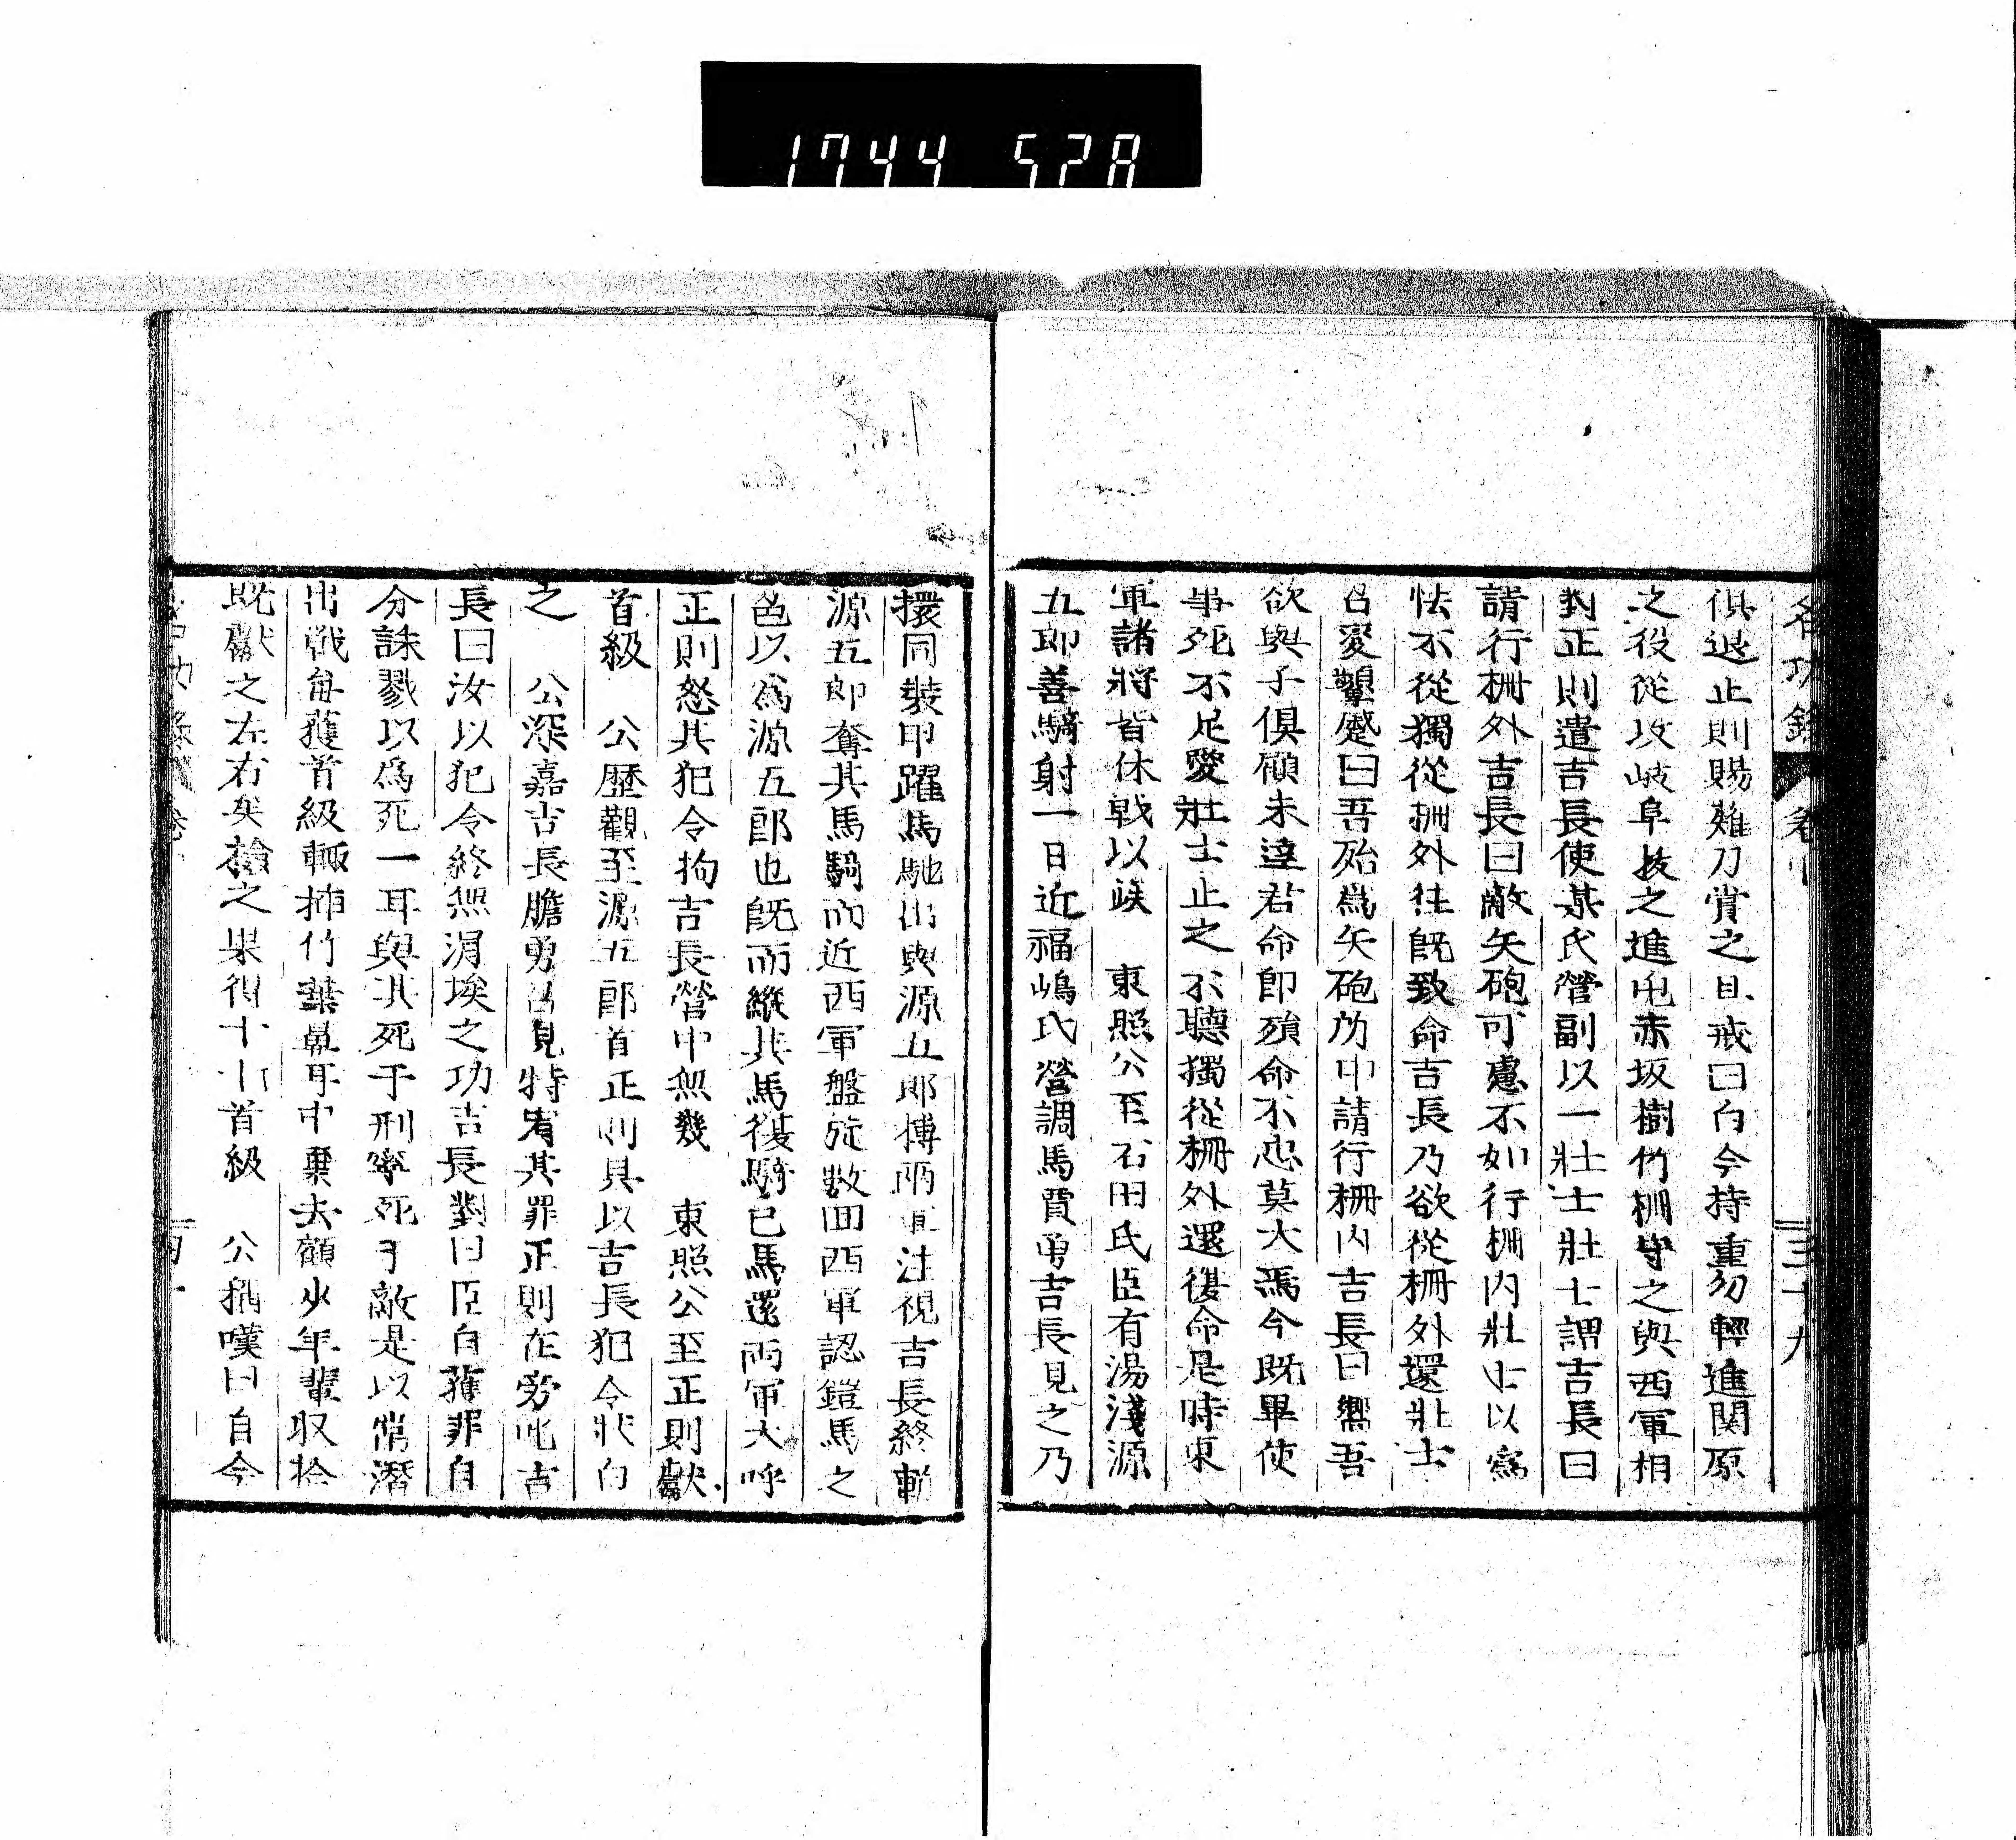 1744 528
名功錄 卷 三十九
俱退止則賜薙刀賞之且戒曰自今持重勿輕進関原
之役從攻岐阜拔之進屯赤坂樹竹柵守之與西軍相
對正則遣吉長使某氏營副以一壯士壯士謂吉長曰
請行柵外吉長曰敵矢砲可慮不如行柵内壯士以爲
怯不從獨從柵外往既致命吉長乃欲從柵外還壯士
色變顰蹙曰吾殆爲矢砲所中請行柵内吉長曰嚮吾
欲與子俱顧未達君命即殞命不忠莫大焉今既畢使
事死不足愛壯士止之不聽獨從柵外還復命是時東
軍諸將皆休戰以竢　東照公至石田氏臣有湯淺源
五郎善騎射一日近福嶋氏營調馬賈勇吉長見之乃
擐同裝甲躍馬馳出與源五郎搏兩軍注視吉長終斬
源五郎奪其馬騎而近西軍盤旋數回西軍認鎧馬之
色以爲源五郎也既而縱其馬復騎已馬還兩軍大呼
正則怒其犯令拘吉長營中無幾　東照公至正則獻
首級　公歷觀至源五郎首正則具以吉長犯令狀白
之　公深嘉吉長膽勇召見特宥其罪正則在旁叱吉
長曰汝以犯令終無涓埃之功吉長對曰臣自獲罪自
分誅戮以爲死一耳與其死于刑寧死于敵是以常潛
出戰每獲首級輒插竹葉鼻耳中棄去顧少年輩収拾
既獻之左右矣撿之果得十八首級　公稱嘆曰自今